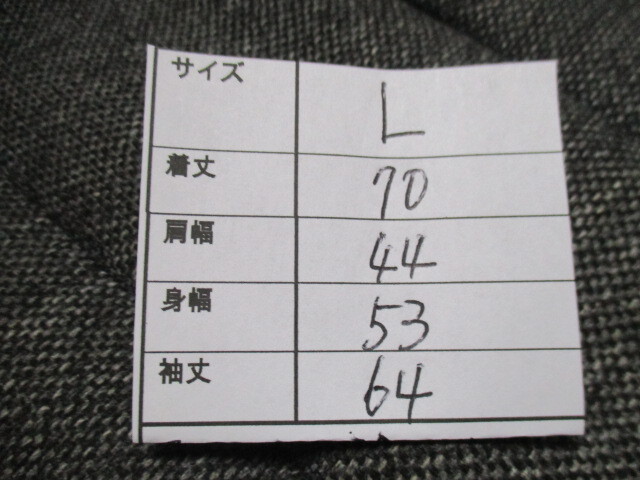 サイズ L
着丈 70
肩幅 44
身幅 53
袖丈 64